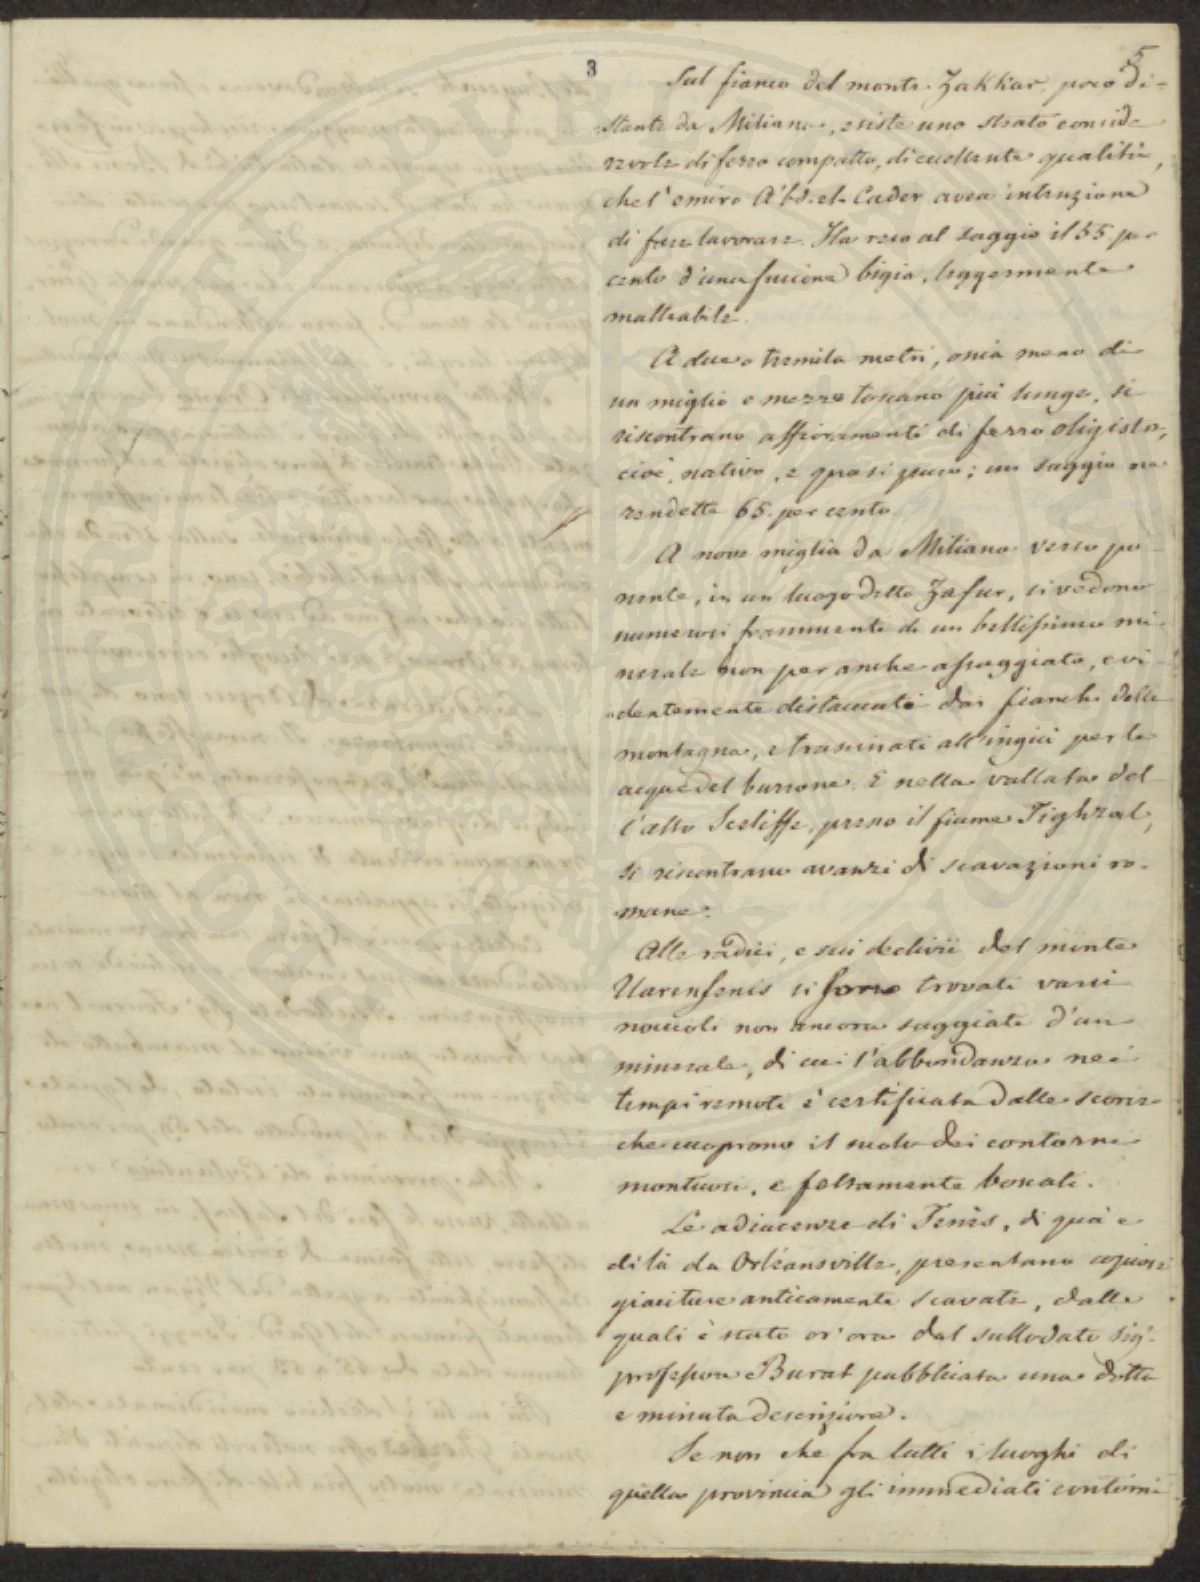 3
5
Sul fianco del monte Zakkar, poco di=
stante da Miliana, esiste uno strato conside
revole di ferro compatto, di eccellente qualità,
che l'emiro A'bd-el-Cader avea intenzione
di fare lavorare. Ha reso al saggio il 55 per
cento d'una fusione bigia, leggermente
malleabile.
A due o tremila metri, ossia meno di
un miglio e mezzo toscano più lunge, si
riscontrano affioramenti di ferro oligisto,
cioè, nativo, e quasi puro; un saggio ne
rendette 65 per cento.
A nove miglia da Miliana verso po
nente, in un luogo detto Zafur, si vedono
numerosi frammenti di un bellissimo mi
nerale non per anche assaggiato, evi
dentemente distaccati dai fianchi della
montagna, e trascinati all'ingiù per le
acque del burrone. E nella vallata del
l'alto Sceliffe, presso il fiume Tighzal,
si riscontrano avanzi di scavazioni ro-
mane.
Alle radici, e sui declivii del monte
Uarensenis si sono trovati varii
noccioli non ancora saggiati d'un
minerale, di cui l'abbondanza nei
tempi remoti è certificata dalle scorie
che cuoprono il suolo dei contorni
montuosi, e foltamente boscati.
Le adiacenze di Tenès, di quà e
di là da Orléansville, presentano copiose
giaciture anticamente scavate, dalle
quali è stata or' ora dal sullodato sig.
professore Burat pubblicata una dotta
e minuta descrizione.
Se non che fra tutti i luoghi di
quella provincia gli immediati contorni